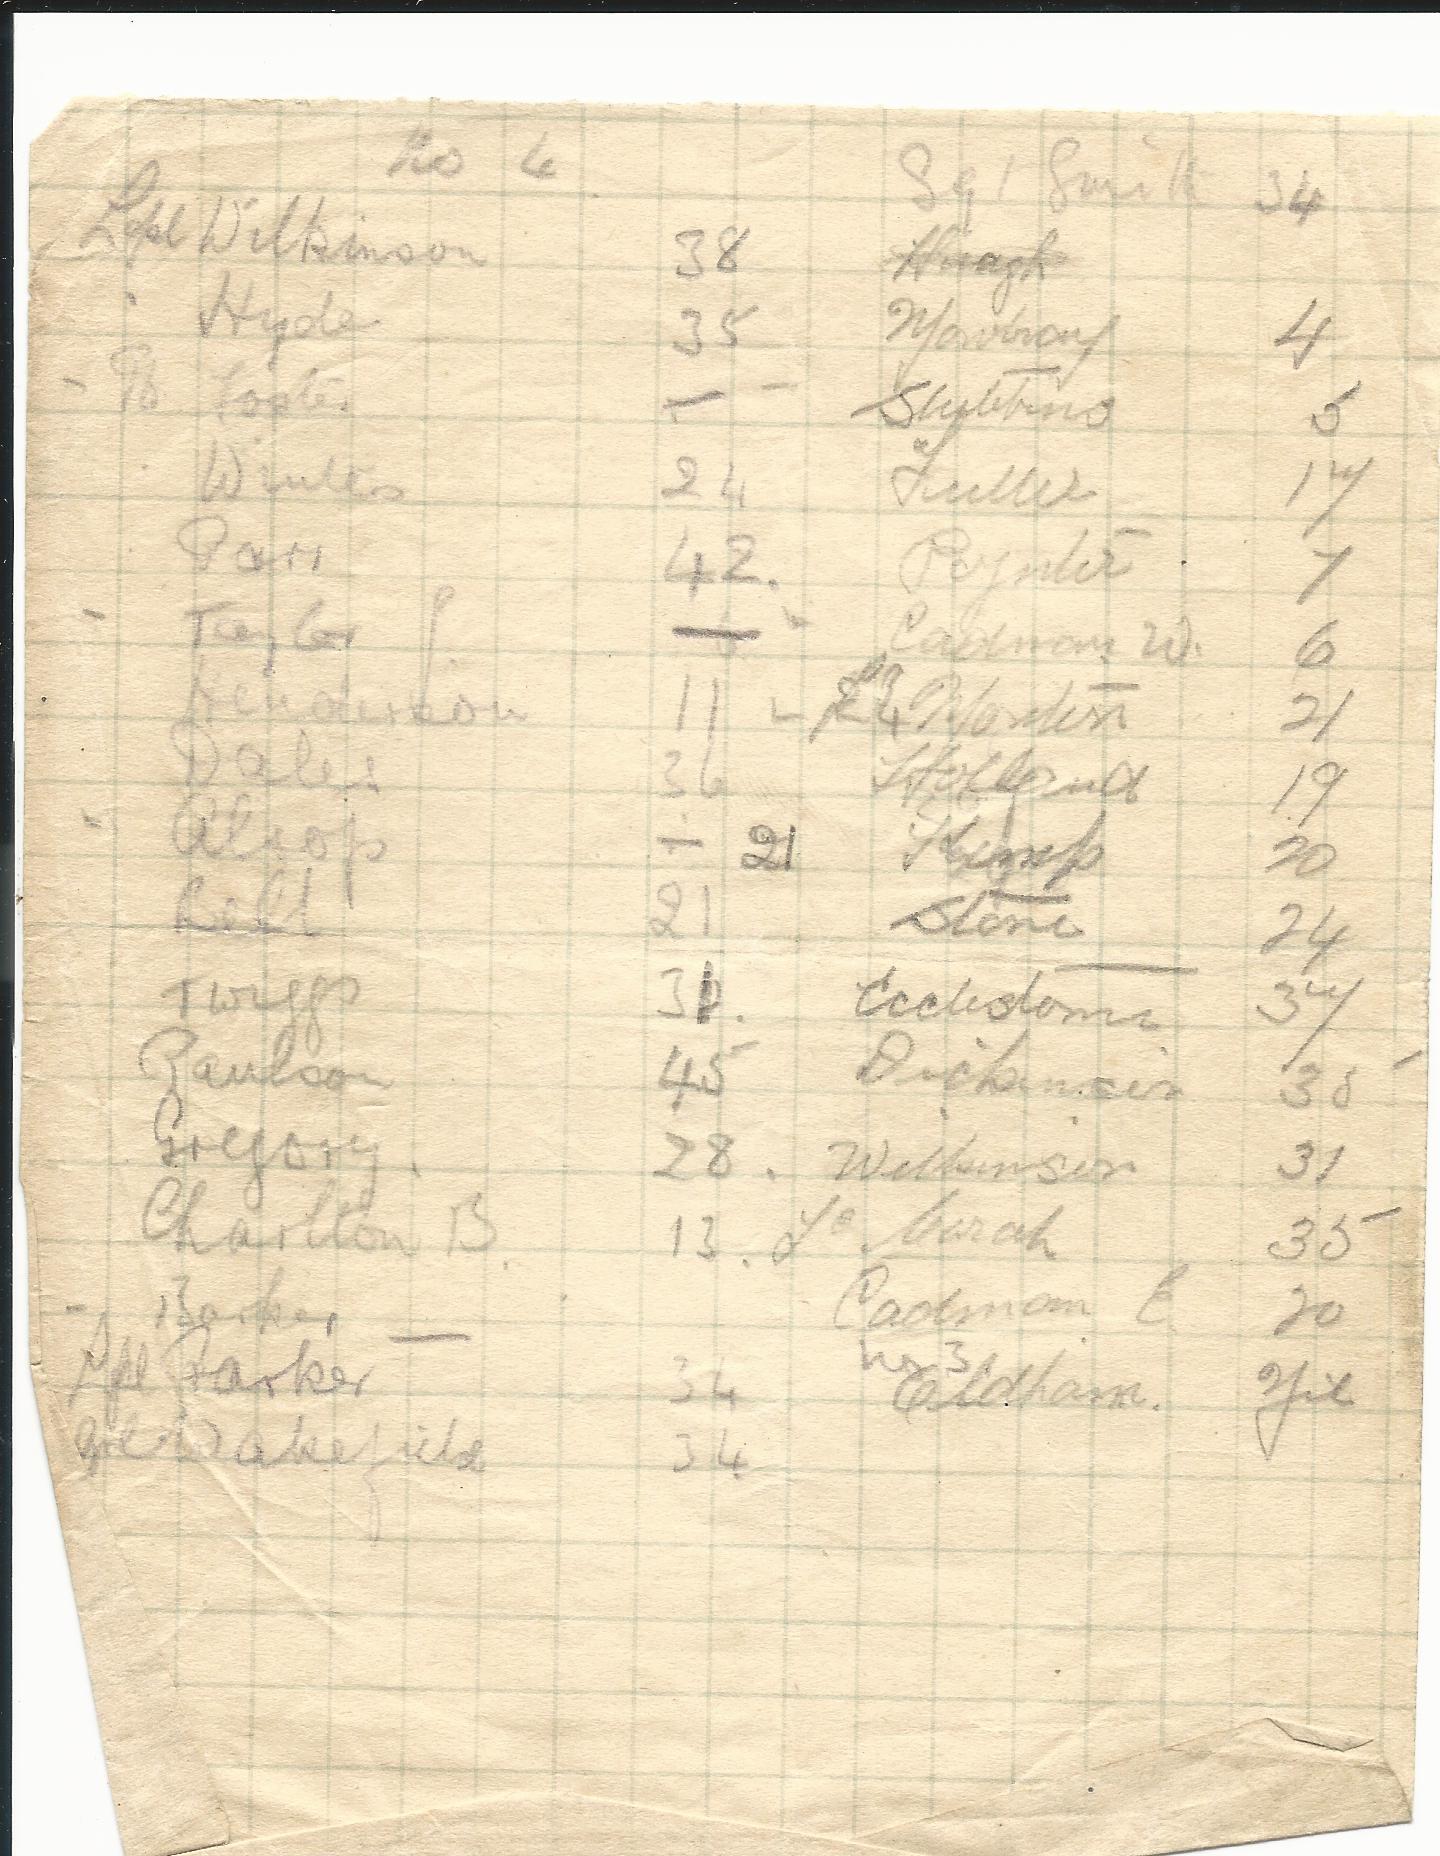 No 4
L/cpl Wilkinson 38
" Hyde 35
- Pte Foster —
Winters 24
Parr 42.
- Taylor J. —
Henderson 11
Dales 36
- Alsop — 21
Belt 21
Twiggs 31.
Paulson 45
Gregory. 28.
Charlton B. 13.
- Barker —
Parker 34
Wakefield 34
Sgt Smith 34
Hough
Mowbray 4
Stubbins 5
Fuller 17
Poynter 7
Cadman W. 6
Worden 21
Holland 19
Kemp 20
Stone 24
Ecclestone 37
Dickinson 35
Wilkinson 31
35
Cadman E. 20
No 3
Oldham. Nil